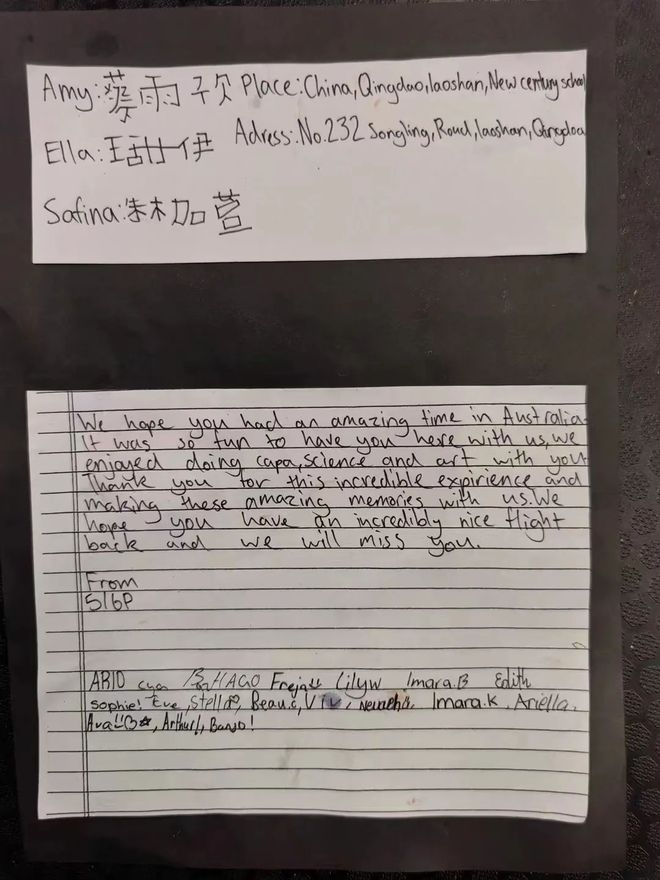 Amy:蔡雨 Place:China,Qingdao,laoshan,New century school
Ella: 伊 Adress:No.232 Songling,Roud,laoshan,Qingdoa
Safina: 加萱
We hope you had an amazing time in Australia.
It was so fun to have you here with us,we
enjoyed doing capa,science and art with you
Thank you for this incredible expirience and
making these amazing memories with us.We
hope you have an incredibly nice flight
back and we will miss you.
From
5/6P
ARIO HAGO Freja Lilyw Imara.B Edith
sophie! Eve, Stella, Beau.c, Viv, Imara.K, Ariella.
Ava, Arthur!, Banjo!